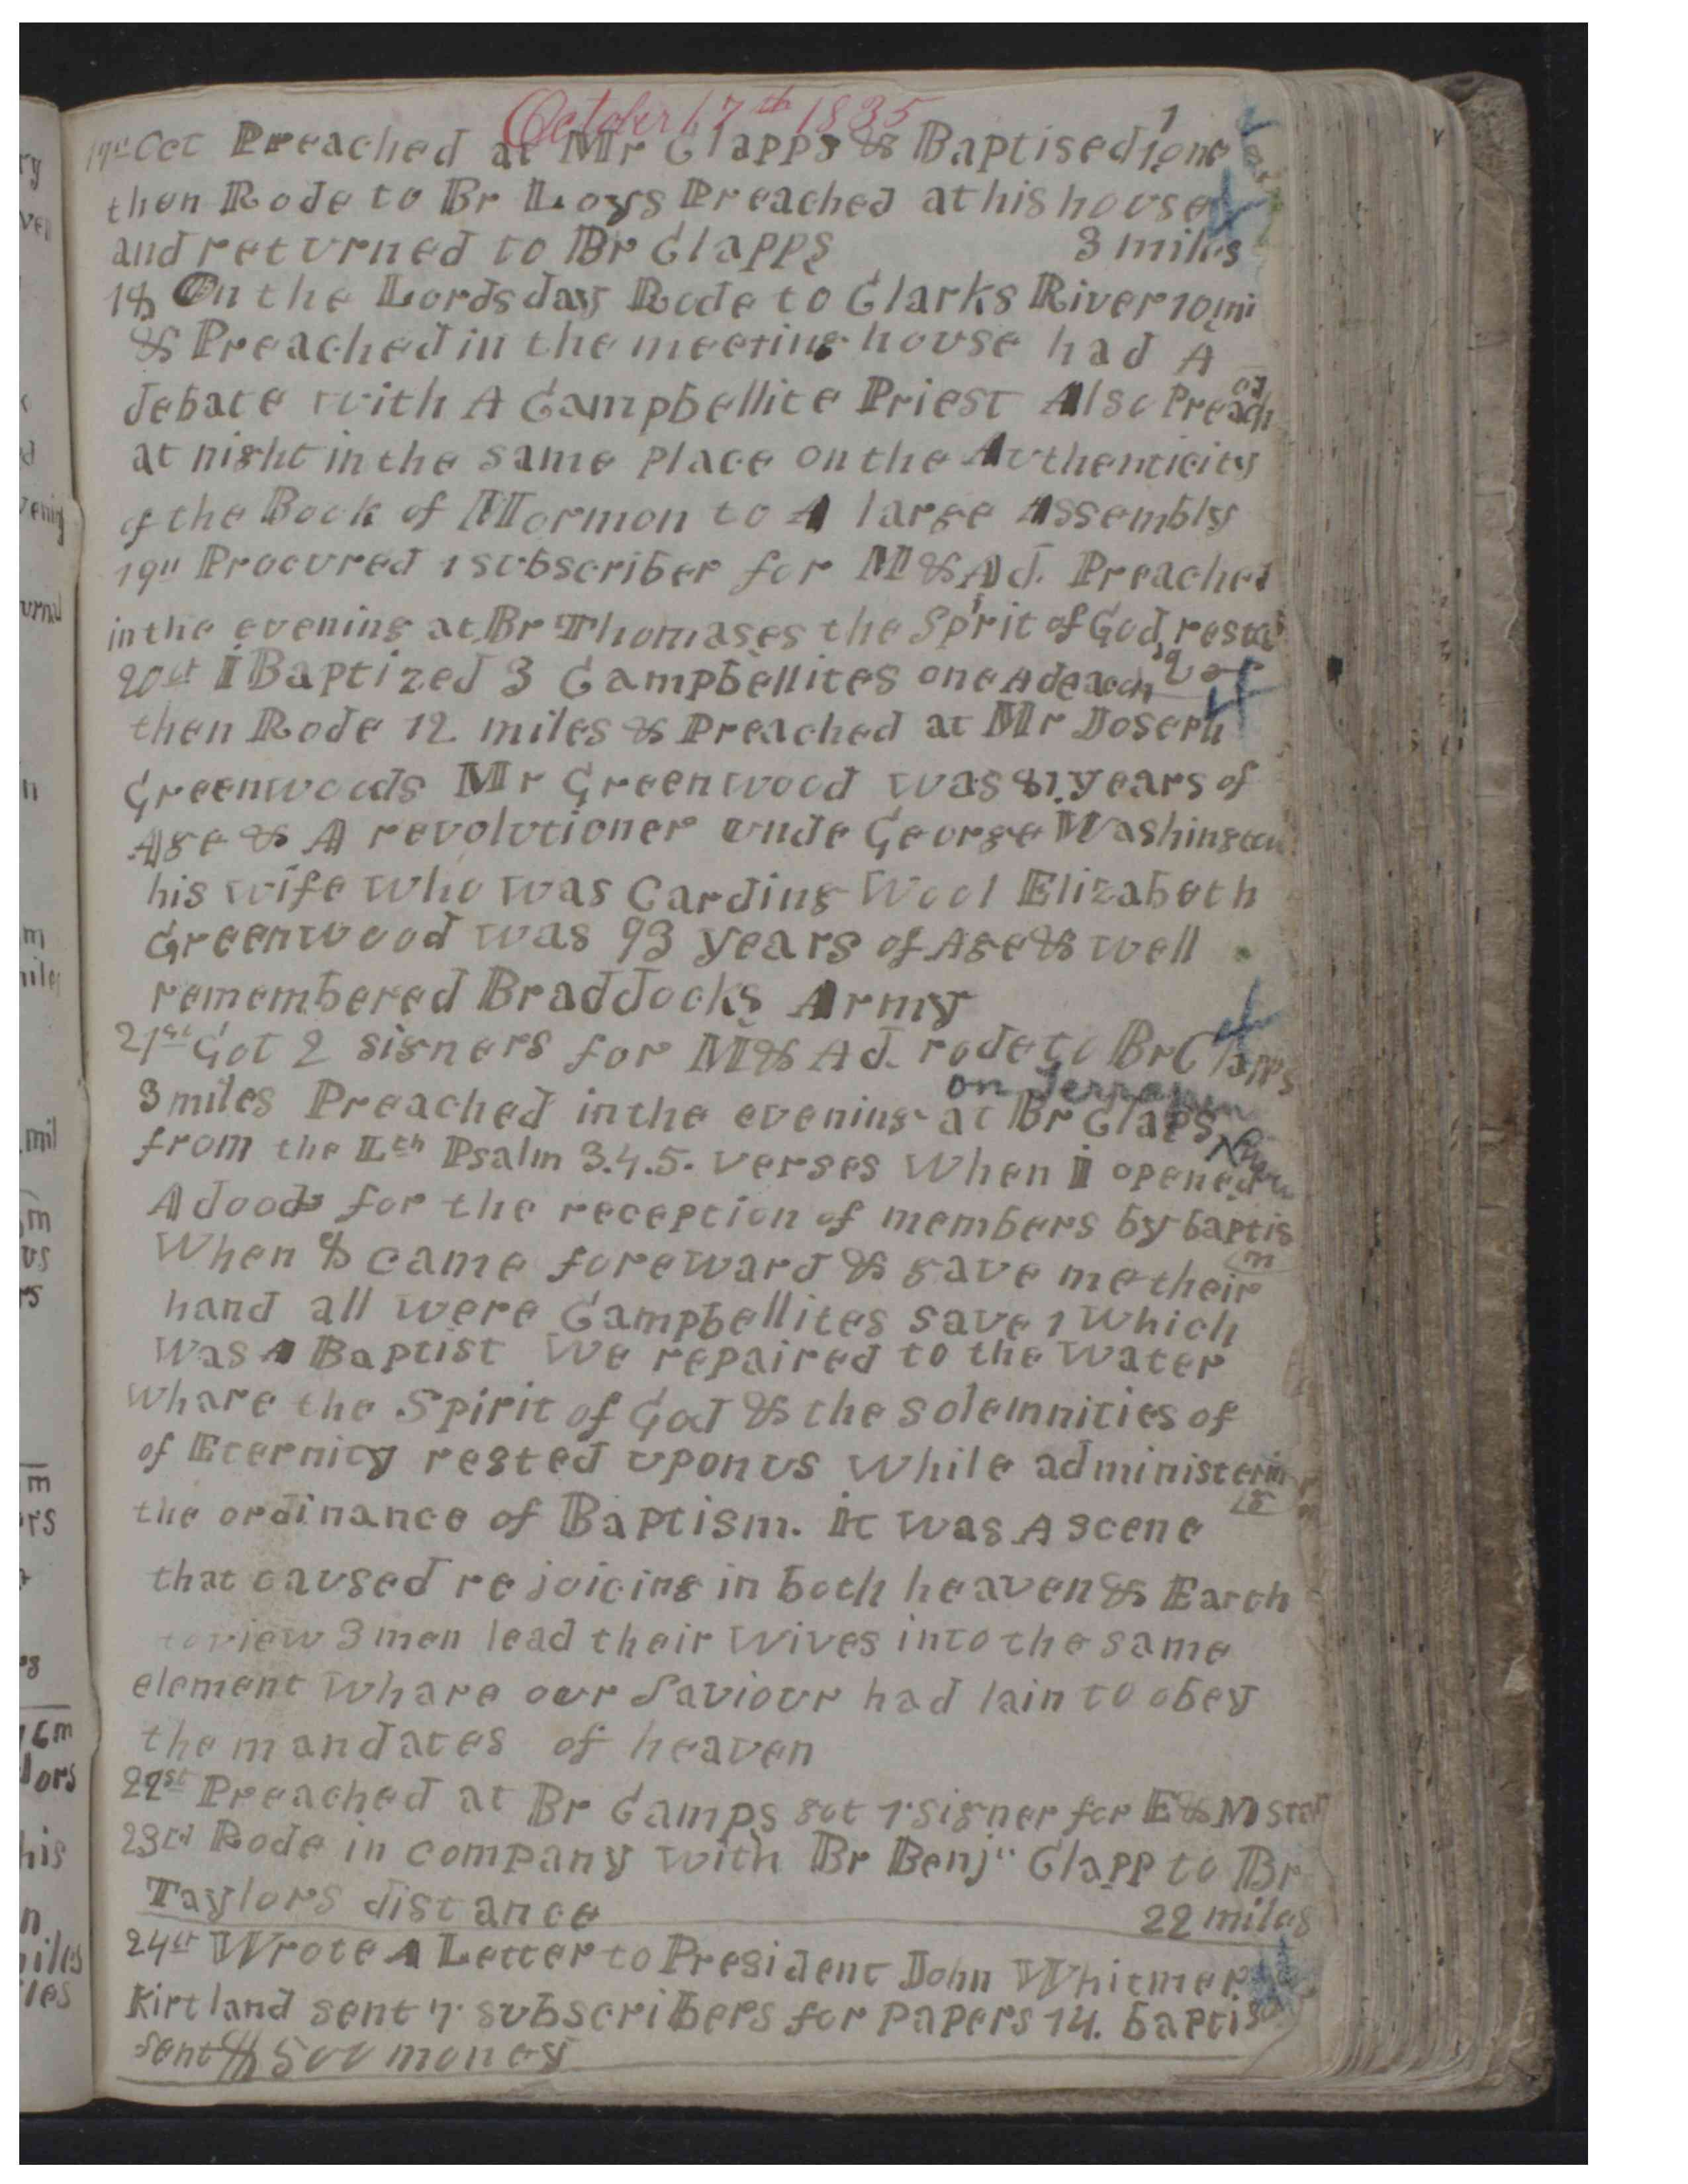 October 17th 1835
17th Oct Preached at Mr Clapps & Baptised 1 one
then Rode to Br Loys Preached at his house
and returned to Br Clapps 3 miles
18 On the Lords day Rode to Clarks River 10 mi
& Preached in the meeting house had A
debate with A Campbellite Priest Also Preach ed
at night in the same place on the Authenticity
of the Book of Mormon to A large Assembly
19th Procured 1 subscriber for M & Ad. Preached
in the evening at Br Thomases the Spirit of God rested
20th I Baptized 3 Campbellites one A deacon
then Rode 12 miles & Preached at Mr Joseph
Greenwoods Mr Greenwood was 81 years of
Age & A revolutioner unde George Washington
his wife who was Carding Wool Elizabeth
Greenwood was 93 years of Age & well
remembered Braddocks Army
21st Got 2 signers for M & Ad. rode to Br Clapps
on
3 miles Preached in the evening at Br Claps
from the Lth Psalm 3.4.5. verses When I opened
A door for the reception of members by baptis
m
When 8 came foreward & gave me their
hand all were Campbellites save 1 Which
was A Baptist We repaired to the water
Whare the Spirit of God & the solemnities of
of Eternity rested upon us While administerin
g
the ordinance of Baptism. It was A scene
that caused rejoicing in both heaven & Earth
to view 3 men lead their wives into the same
element Whare our Saviour had lain to obey
the mandates of heaven
22st Preached at Br Camps got 1 signer for E & M star
23rd Rode in company with Br Benj" Clapp to Br
Taylors distance 22 miles
24th Wrote A Letter to President John Whitmer
Kirtland sent 7 subscribers for papers 14. baptis
sent $500 money